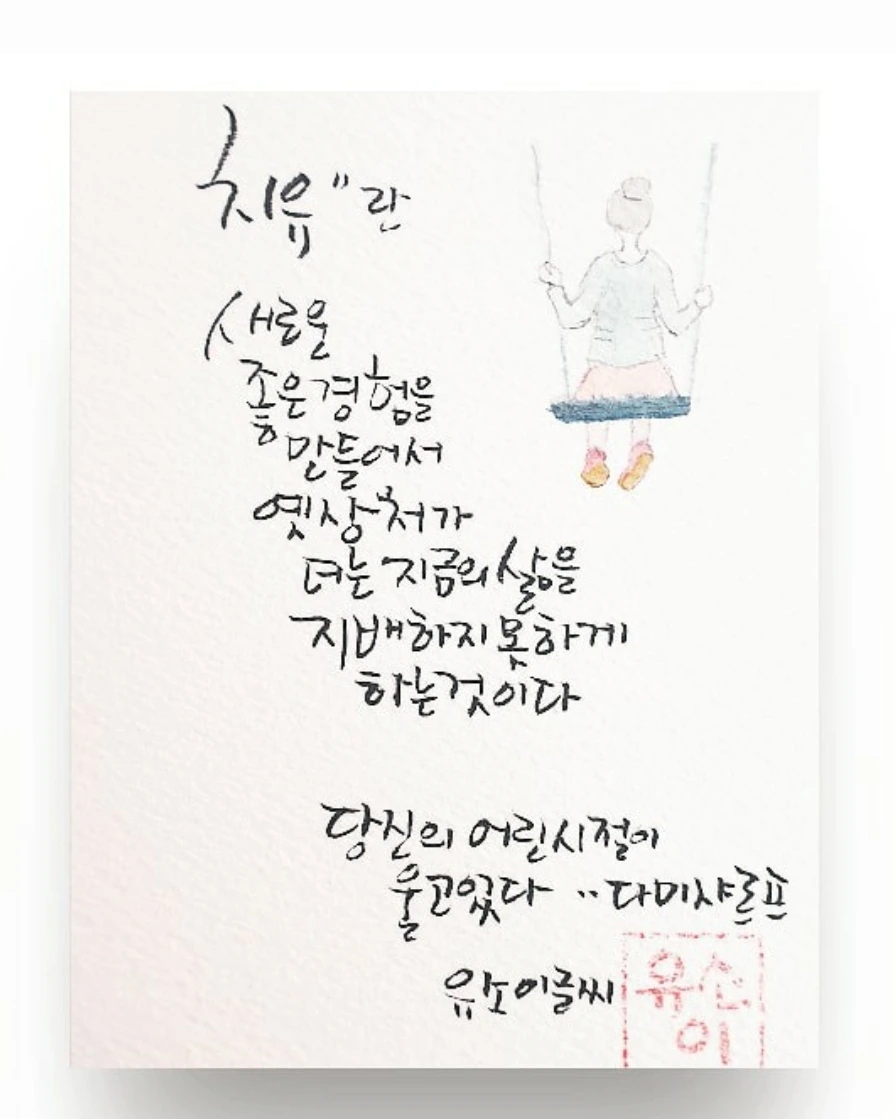 치유"란
새로운
좋은경험을
만들어서
옛상처가
더는지금의삶을
지배하지못하게
하는것이다
당신의 어린시절이
울고있다 ··다미샤르프
유소이글씨
유소
이